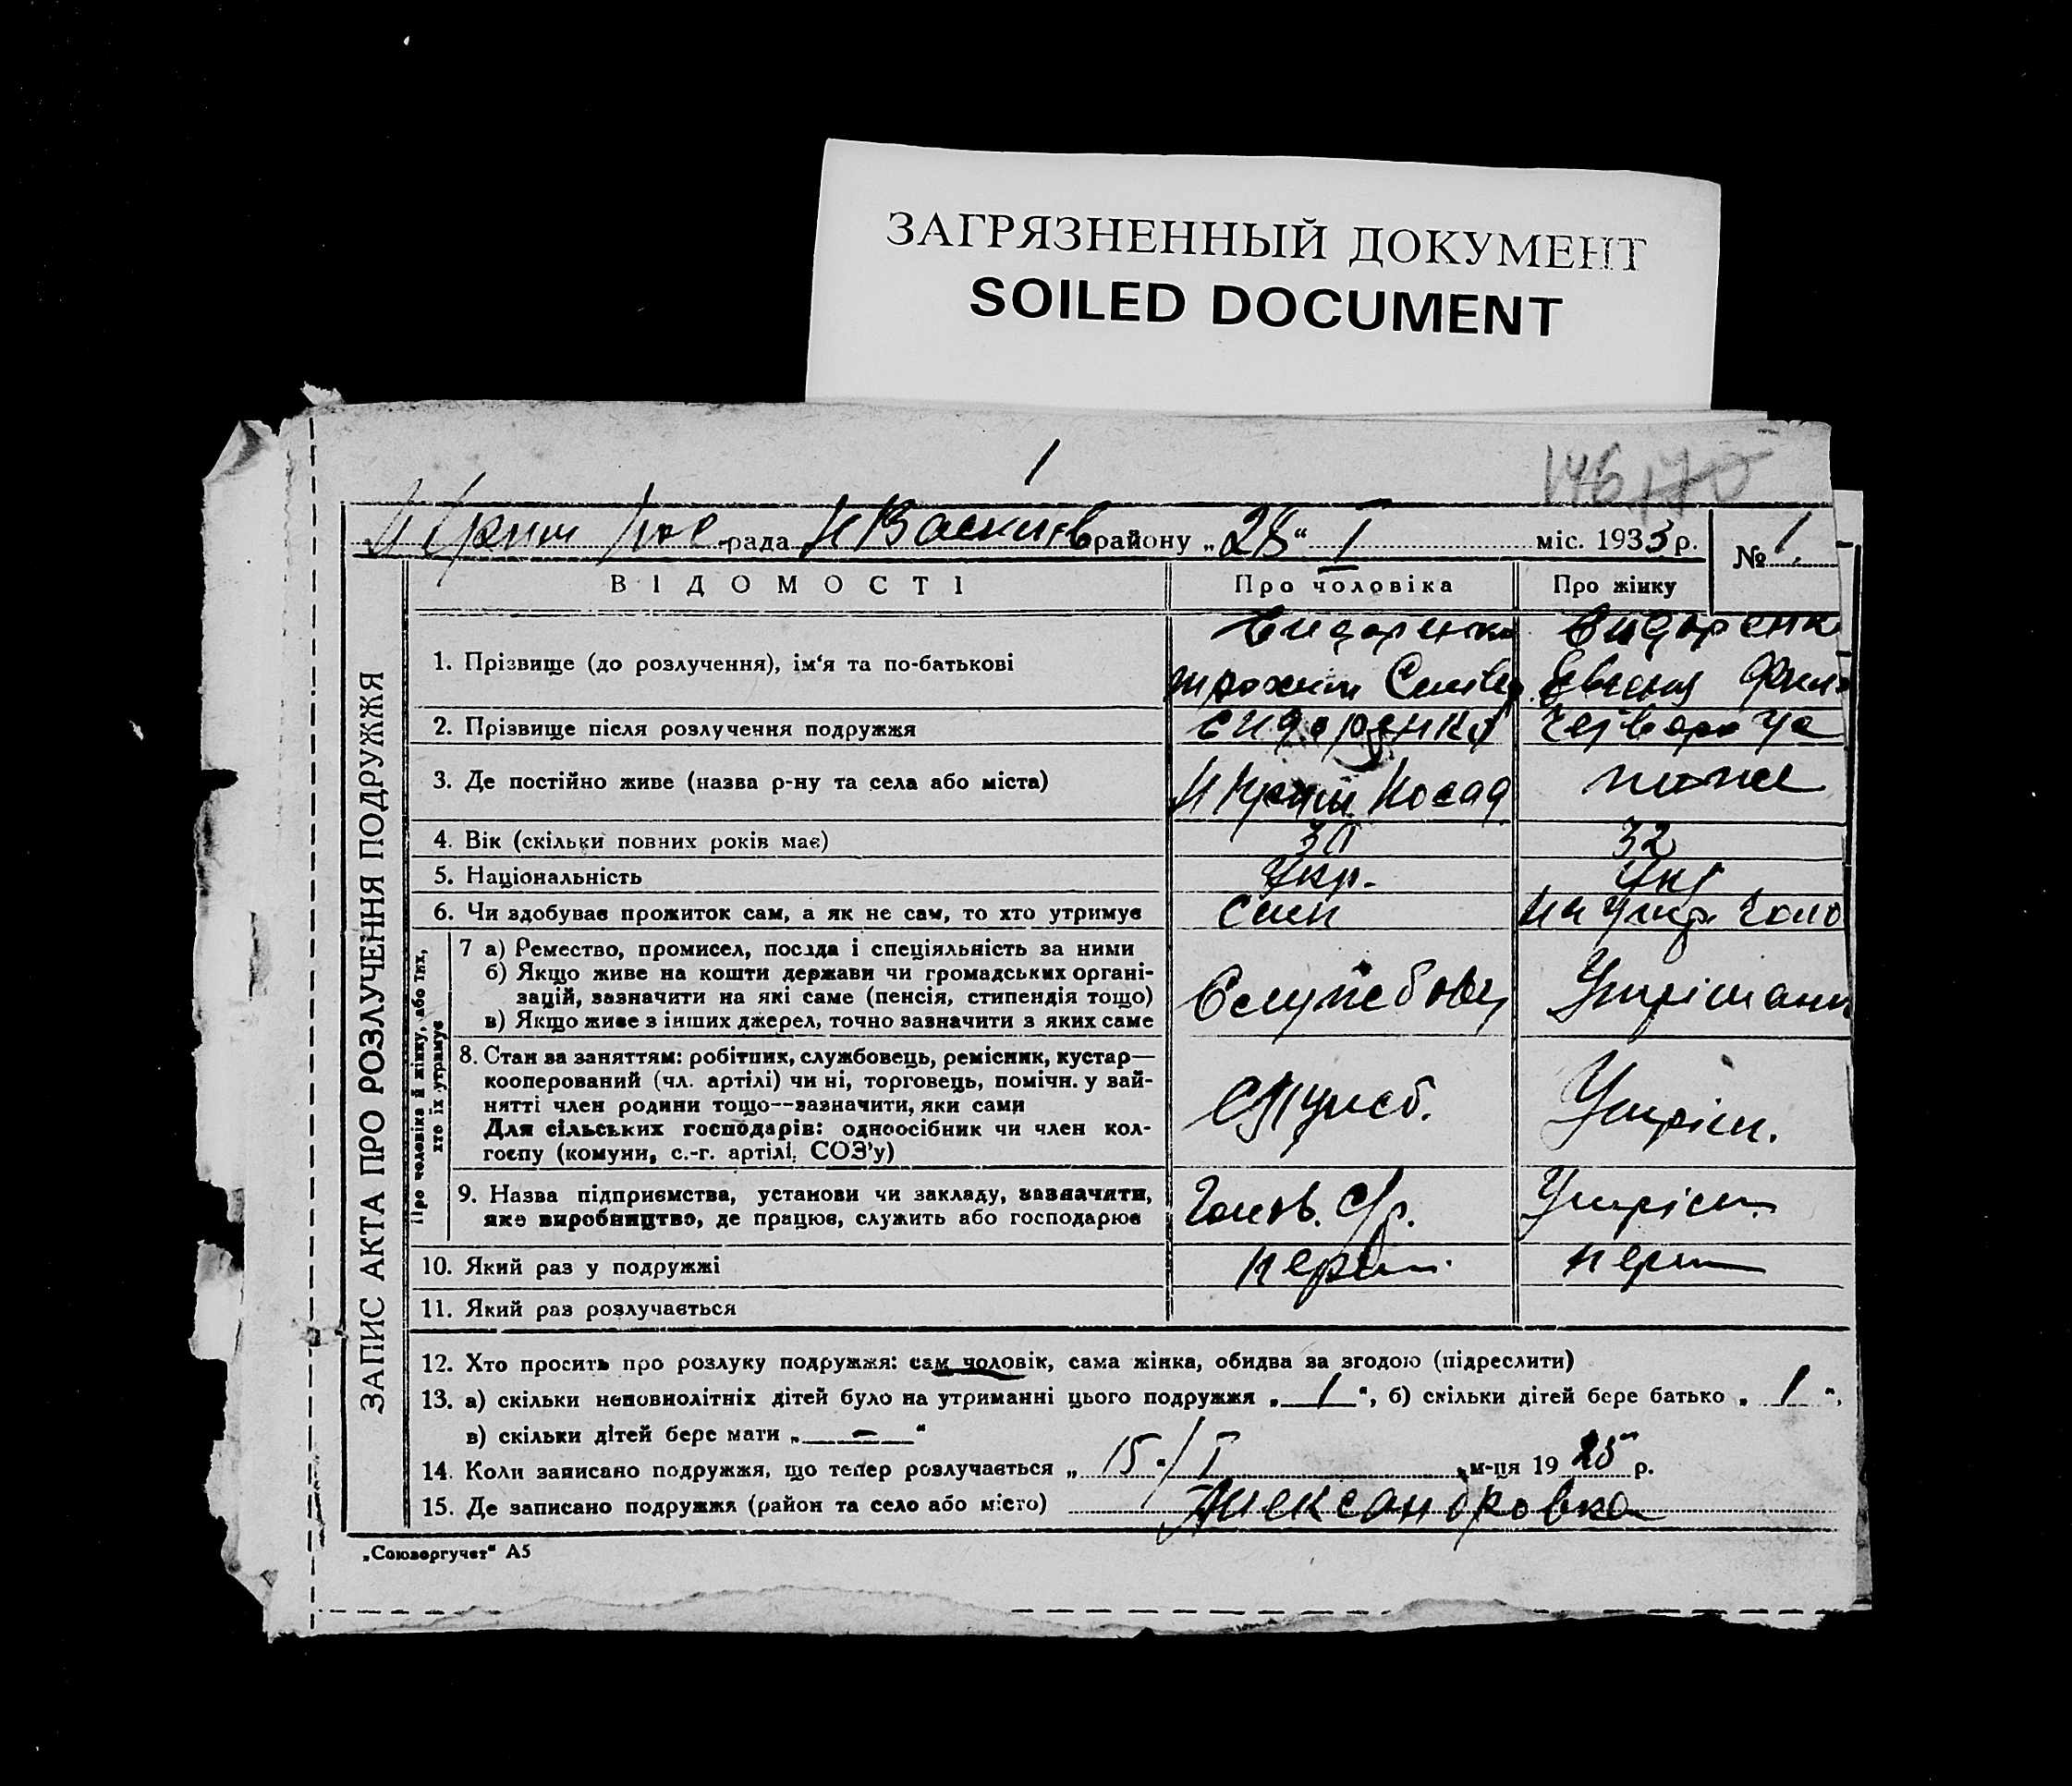 ЗАГРЯЗНЕННЫЙ ДОКУМЕНТ
SOILED DOCUMENT
1
146
рада району „28“ I міс. 1933 р. № 1
ЗАПИС АКТА ПРО РОЗЛУЧЕННЯ ПОДРУЖЖЯ
ВІДОМОСТІ Про чоловіка Про жінку
1. Прізвище (до розлучення), ім‘я та по-батькові Сидоренко Сидоренк
2. Прізвище після розлучення подружжя Сидоренко
3. Де постійно живе (назва р-ну та села або міста)
4. Вік (скільки повних років має) 32
5. Національність Укр. Укр
6. Чи здобуває прожиток сам, а як не сам, то хто утримує сам
Про чоловіка й жінку, або тих,
хто їх утримує
7 а) Ремество, промисел, посада і спеціяльність за ними
б) Якщо живе на кошти держави чи громадських органі-
зацій, зазначити на які саме (пенсія, стипендія тощо)
в) Якщо живе з інших джерел, точно зазначити з яких саме
Утріман
8. Стан за заняттям: робітник, службовець, ремісник, кустар—
кооперований (чл. артілі) чи ні, торговець, помічн. у зай-
нятті член родини тощо—зазначити, яки сами
Для сільських господарів: одноосібник чи член кол-
госпу (комуни, с.-г. артілі, СОЗ’у)
Служб. Утрім.
9. Назва підприємства, установи чи закладу, зазначити,
яке виробництво, де працює, служить або господарює
Голов. с/р. Утрім.
10. Який раз у подружжі перш. перш
11. Який раз розлучається
12. Хто просить про розлуку подружжя: сам чоловік, сама жінка, обидва за згодою (підреслити)
13. а) скільки неповнолітніх дітей було на утриманні цього подружжя „ 1 “, б) скільки дітей бере батько „ 1 “,
в) скільки дітей бере мати „ – “
14. Коли записано подружжя, що тепер розлучається „ 15 “ I м-ця 19 25 р.
15. Де записано подружжя (район та село або місто) Александровка
„Союзоргучет“ А5